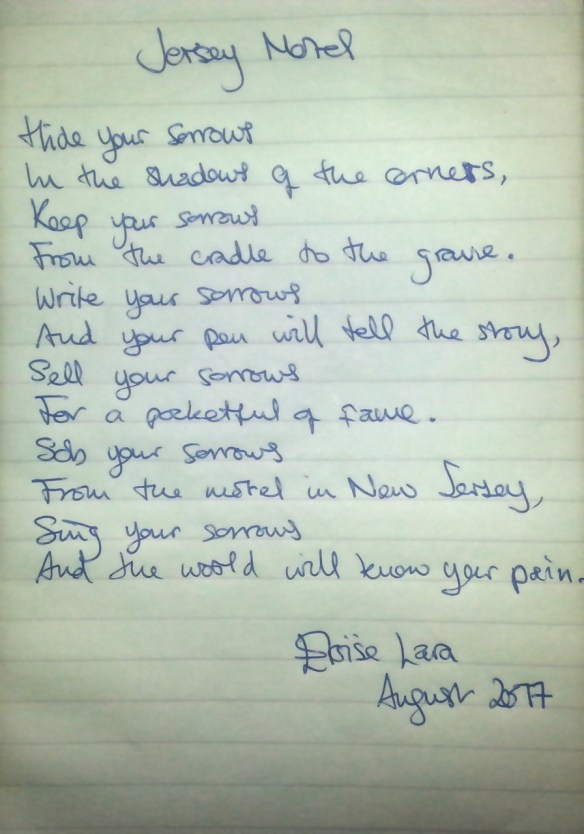 Jersey Motel
Hide your sorrows
In the shadows of the corners,
Keep your sorrows
From the cradle to the grave.
Write your sorrows
And your pen will tell the story,
Sell your sorrows
For a pocketful of fame.
Sob your sorrows
From the motel in New Jersey,
Sing your sorrows
And the world will know your pain.
Eloïse Lara
August 2017